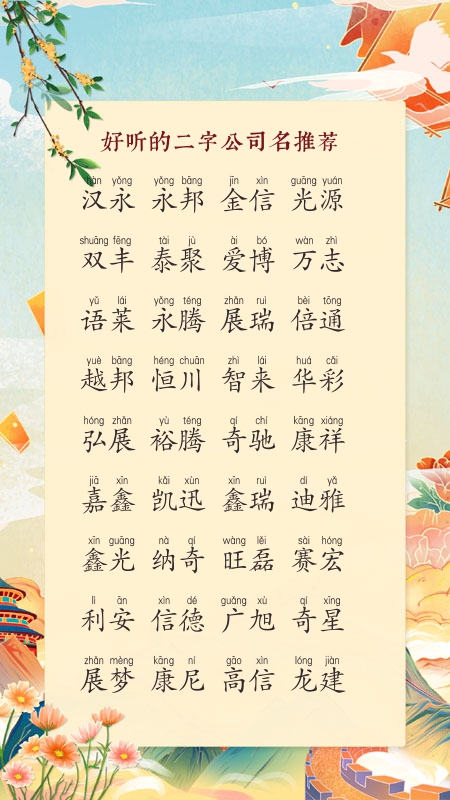 好听的二字公司名推荐
hàn yǒng yǒng bāng jīn xìn guāng yuán
汉永 永邦 金信 光源
shuāng fēng tài jù ài bó wàn zhì
双丰 泰聚 爱博 万志
yǔ lái yǒng téng zhǎn ruì bèi tōng
语莱 永腾 展瑞 倍通
yuè bāng héng chuān zhì lái huá cǎi
越邦 恒川 智来 华彩
hóng zhǎn yù téng qí chí kāng xiáng
弘展 裕腾 奇驰 康祥
jiā xīn kǎi xùn xīn ruì dí yǎ
嘉鑫 凯迅 鑫瑞 迪雅
xīn guāng nà qí wàng lěi sài hóng
鑫光 纳奇 旺磊 赛宏
lì ān xìn dé guǎng xù qí xīng
利安 信德 广旭 奇星
zhǎn mèng kāng ní gāo xìn lóng jiàn
展梦 康尼 高信 龙建